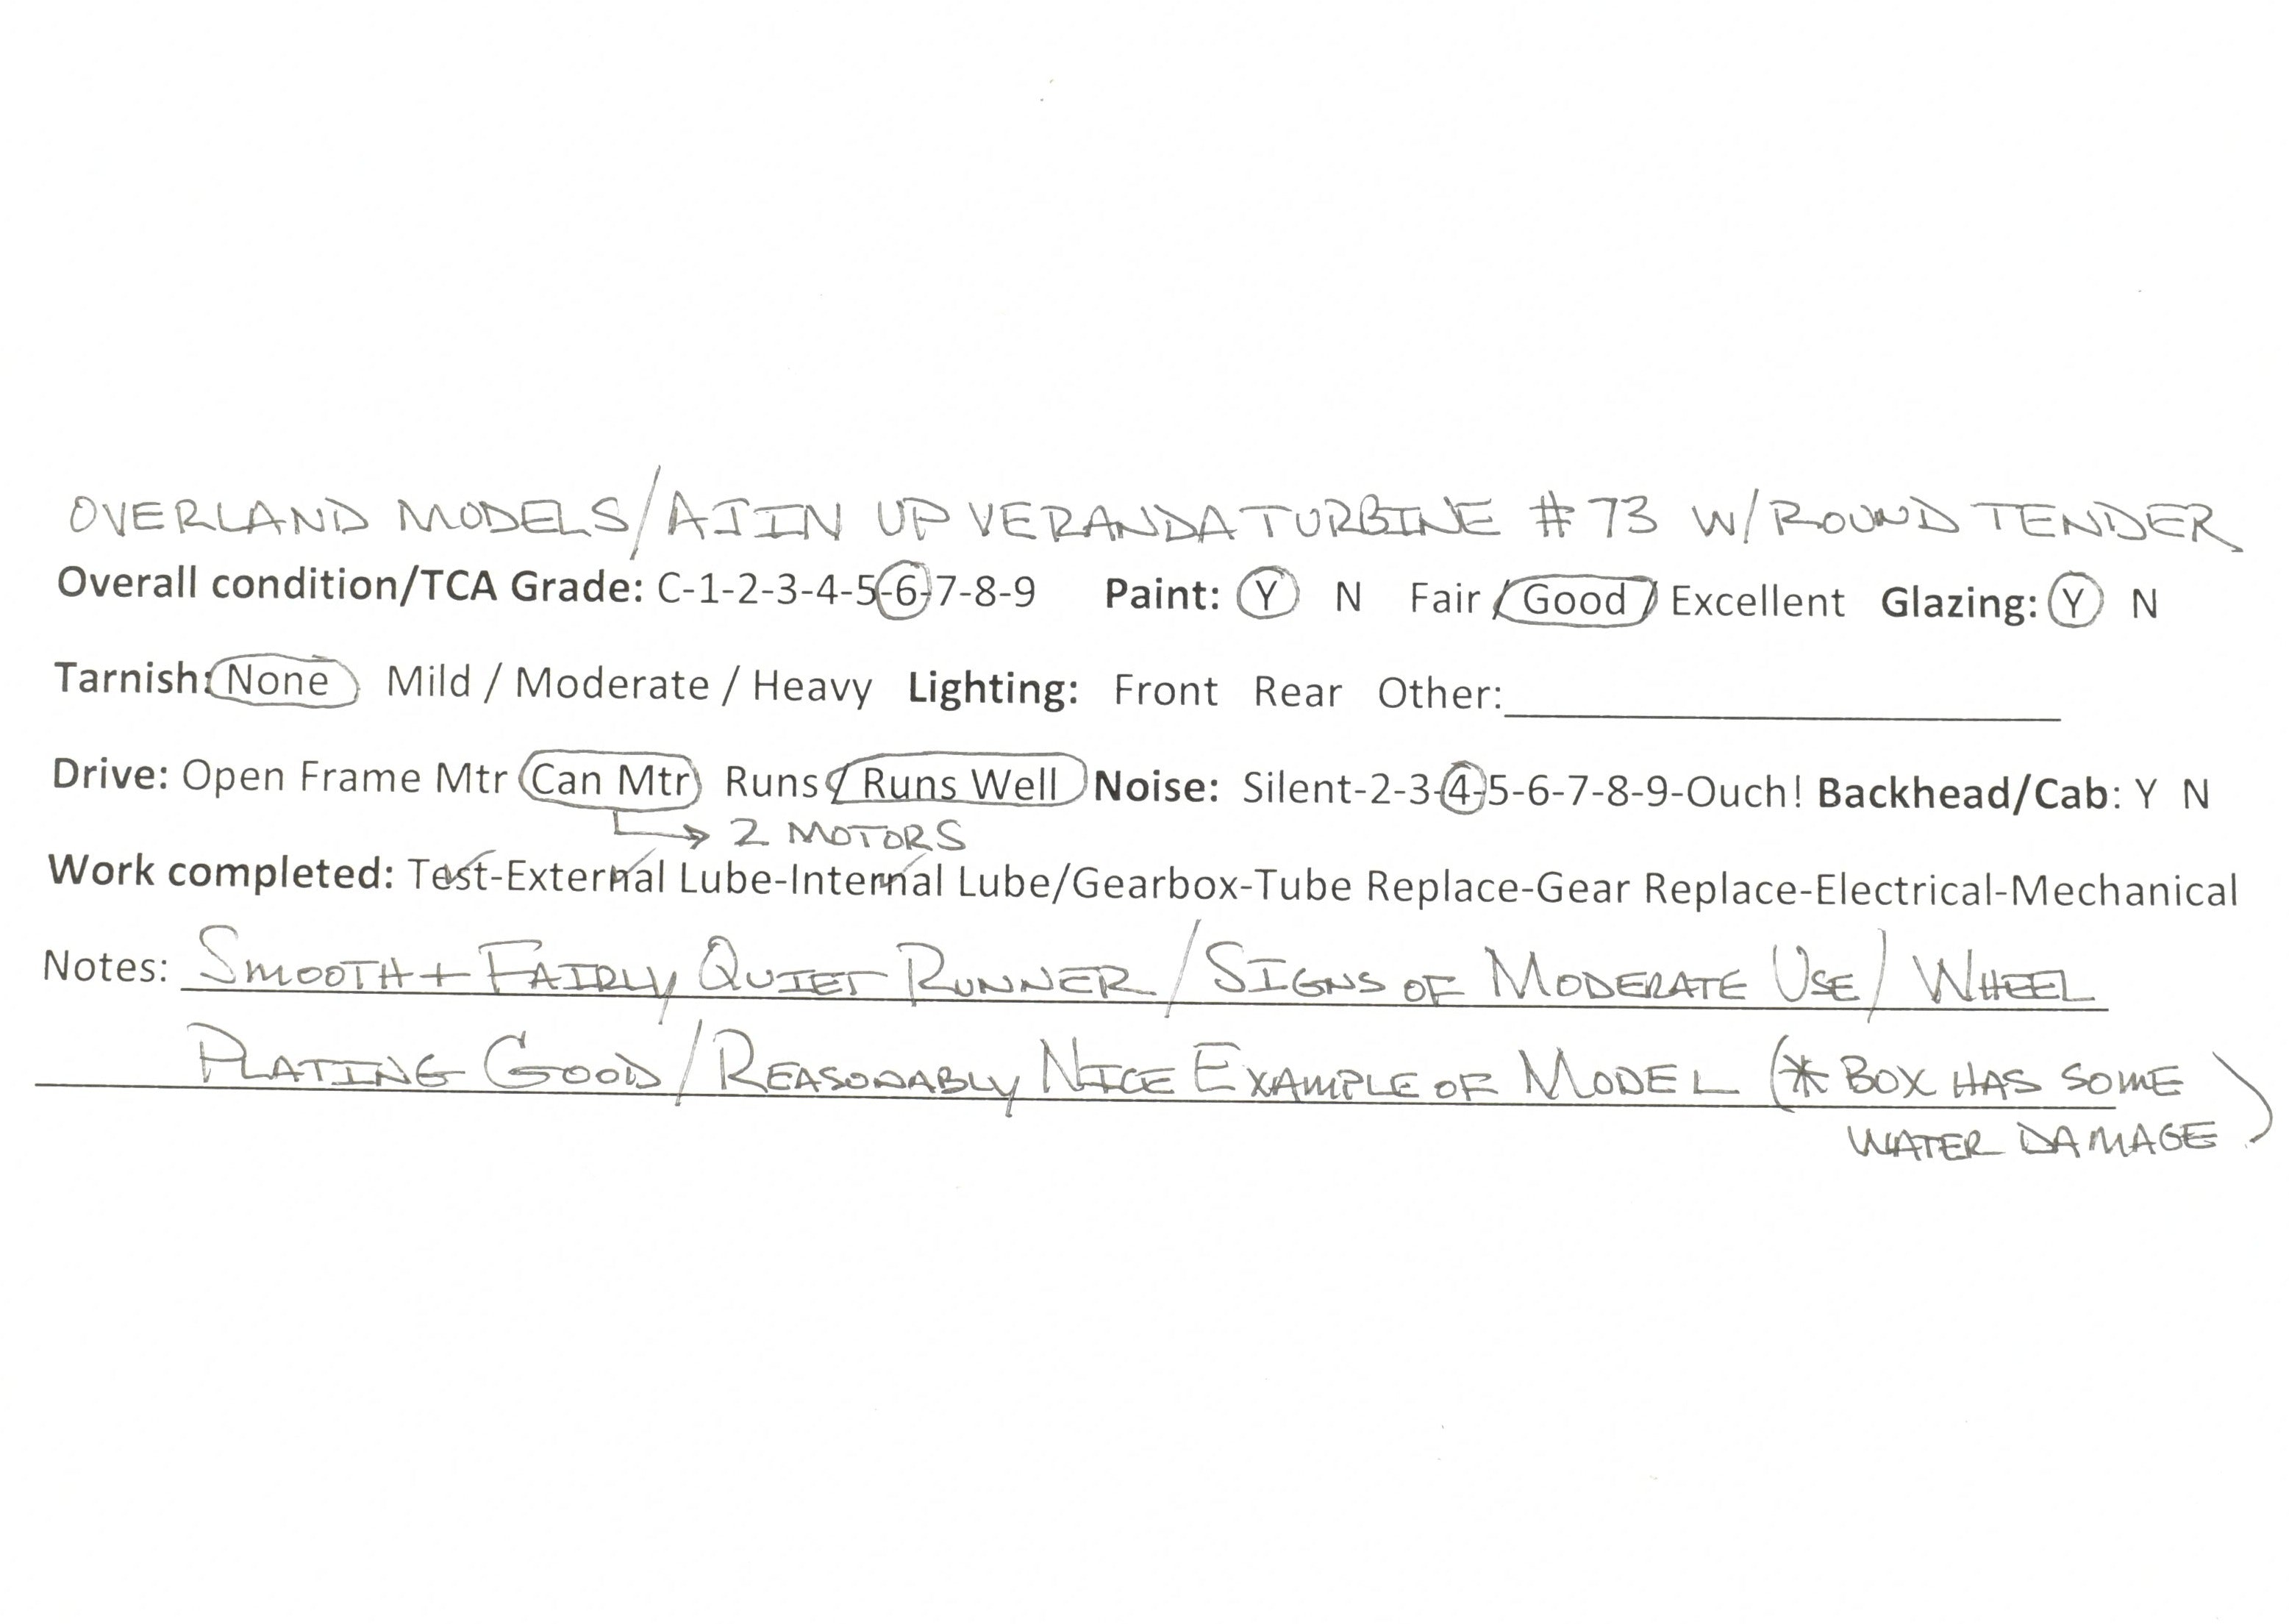 OVERLAND MODELS/AJIN UP VERANDA TURBINE #73 W/ROUND TENDER
Overall condition/TCA Grade: C-1-2-3-4-5-6-7-8-9 Paint: Y N Fair / Good / Excellent Glazing: Y N
Tarnish: None Mild / Moderate / Heavy Lighting: Front Rear Other:
Drive: Open Frame Mtr Can Mtr Runs / Runs Well Noise: Silent-2-3-4-5-6-7-8-9-Ouch! Backhead/Cab: Y N
→ 2 MOTORS
Work completed: Test-External Lube-Internal Lube/Gearbox-Tube Replace-Gear Replace-Electrical-Mechanical
Notes: SMOOTH + FAIRLY QUIET RUNNER/SIGNS OF MODERATE USE/ WHEEL
PLATING GOOD/REASONABLY NICE EXAMPLE OF MODEL (* BOX HAS SOME
WATER DAMAGE)